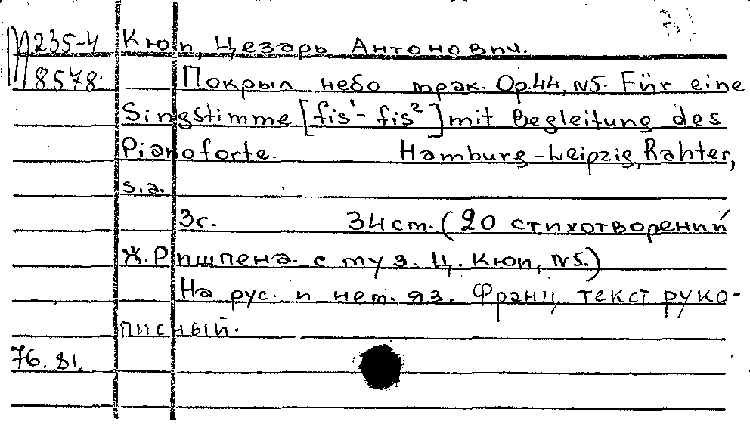 М235-4 Кюи, Цезарь Антонович.
8578. Покрыл небо мрак. Op.44, N5. Für eine
Singstimme [fis¹-fis²] mit Begleitung des
Pianoforte. Hamburg-Leipzig, Rahter,
s.a.
3с. 34 cm. (20 стихотворений
Ж.Ришпена. с муз. Ц. Кюи, N5.)
На рус. и нем. яз. Франц. текст руко-
писный.
76. 81.